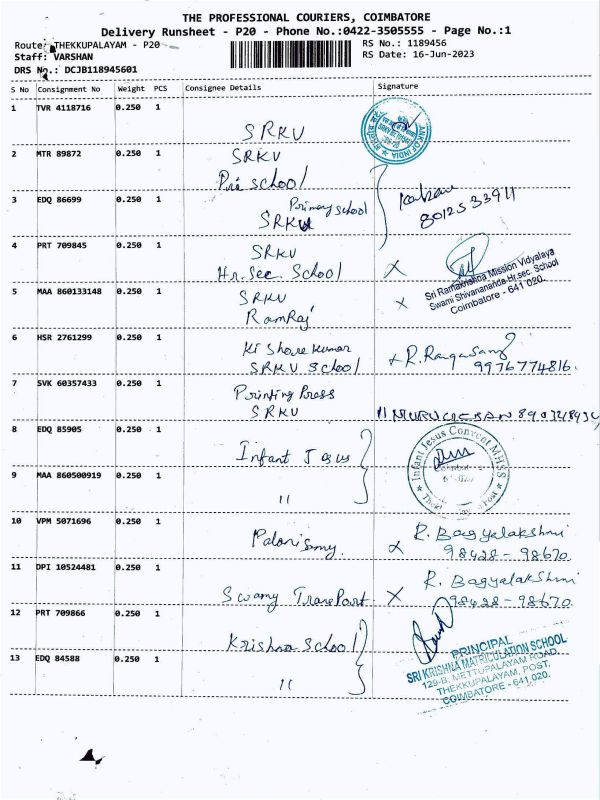 THE PROFESSIONAL COURIERS, COIMBATORE
Delivery Runsheet - P20 - Phone No.:0422-3505555 - Page No.:1
Route: THEKKUPALAYAM - P20
RS No.: 1189456
Staff: VARSHAN
RS Date: 16-Jun-2023
DRS No.: DCJB118945601
S No Consignment No Weight PCS Consignee Details Signature
1 TVR 4118716 0.250 1
SRKV
BANK OF INDIA
2 MTR 89872 0.250 1 SRKV
Pre School
3 EDQ 86699 0.250 1 Primary School
SRKV
80125 33911
4 PRT 709845 0.250 1 SRKV
Hr.Sec School X
Sri Ramakrishna Mission Vidyalaya
Swami Shivanananda Hr.sec. School
Coimbatore - 641 020.
5 MAA 860133148 0.250 1 SRKV X
RamRaj
6 HSR 2761299 0.250 1 Kishore Kumar
SRKV School R. Rangasamy
9976774816.
7 SVK 60357433 0.250 1 Printing Press
SRKV MURUGESAN
8 EDQ 85905 0.250 1
Infant Jesus
Infant Jesus Convent MHSS
9 MAA 860500919 0.250 1
"
10 VPM 5071696 0.250 1
Palanisamy. X R. Bagyalakshmi
98428-98670
11 DPI 10524481 0.250 1
Swamy Transport X R. Bagyalakshmi
98428-98670
12 PRT 709866 0.250 1
Krishna School
13 EDQ 84588 0.250 1
"
PRINCIPAL
SRI KRISHNA MATRICULATION SCHOOL
129-B, METTUPALAYAM ROAD,
THEKKUPALAYAM, POST,
COIMBATORE - 641 020.